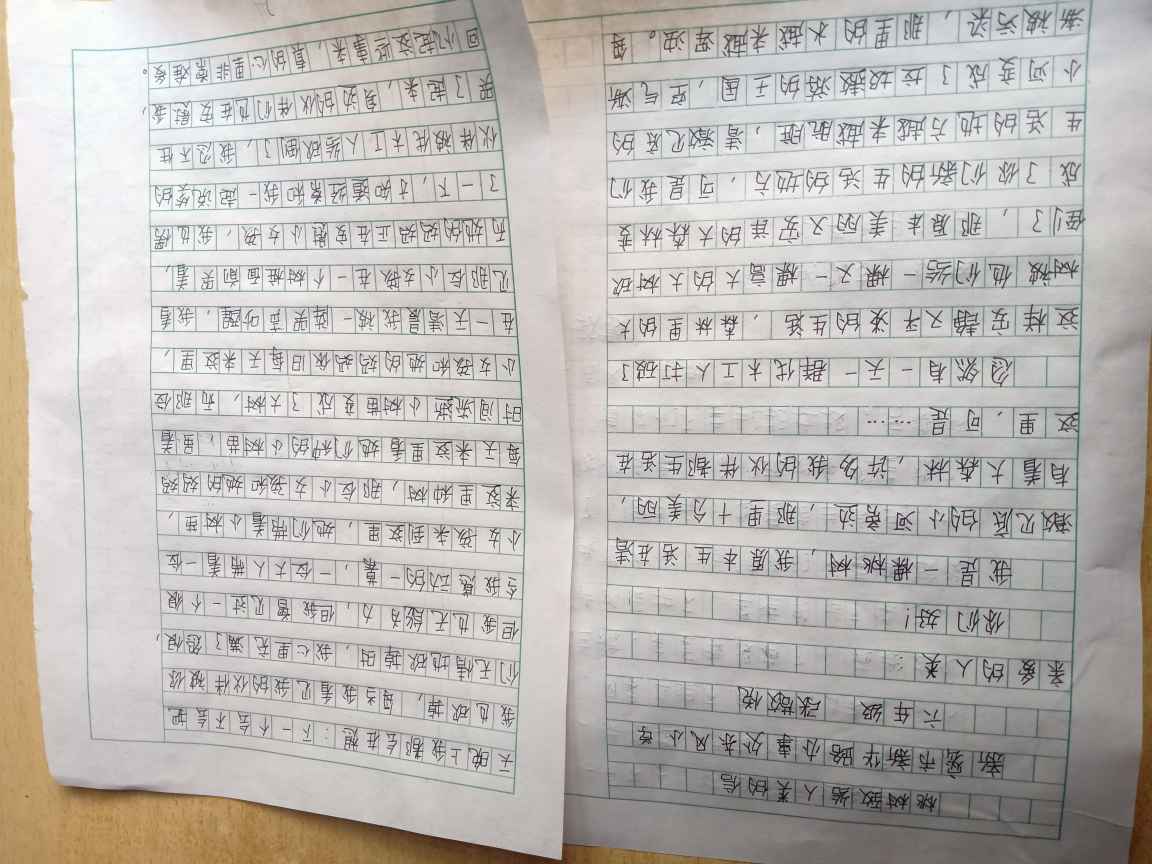 桃树致给人类的信
新密市新华路办事处东风小学
六年级 张敬
亲爱的人类
你们好!
我是一棵桃树,我原本生活在清
澈见底的小河旁边,那里十分美丽,
有着大森林,许多我的伙伴都生活在
这里,可是……
忽然有一天一群伐木工人打破了
这样安静又平淡的生活,森林里的大
树被他们给一棵又一棵高大的大树砍
倒了,那原本美丽又安详的大森林变
成了你们新的生活的地方,可是我们
生活的地方越来越肮脏,清澈见底的
小河变成了垃圾遨游的王国,空气渐
渐被污染,那里的水越来越浑浊。每
天晚上我都会在想:下一个会不会是
我也砍掉,每当我看见我的伙伴被你
们无情地砍掉时,我心里充满了怨恨,
但我也无能为力,但我曾见过一个很
令我感动的一幕,一位大人带着一位
小女孩来到这里,她们带着小树里,
来这里种树,那位小女孩和她的妈妈
每天来这里看她们种的小树苗,里着
时间渐渐小树苗变成了大树,而那位
小女孩和她的妈妈依旧每天来这里,
在一天清晨我被一阵哭声吵醒,我看
见那位小女孩在一个树桩面前哭着,
而她的妈妈正在安慰小女孩,我也愣
了一下,才知道经常和我一起说笑的
伙伴被伐木工人给砍倒了,我忍不住
哭了起来,身边的伙伴们也在安慰我,
回忆起这些事来,真的心里非常难受。